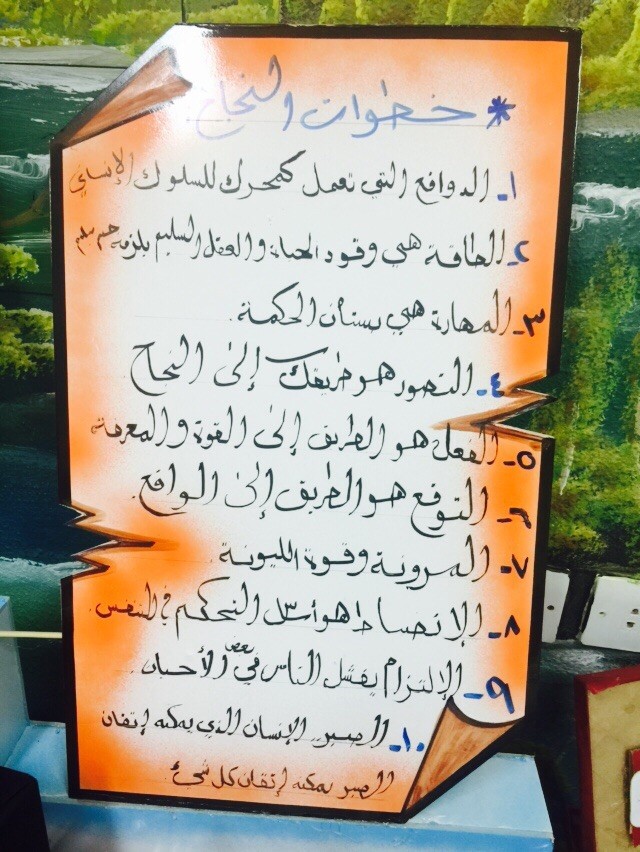 * خطوات النجاح
١- الدوافع التي تعمل كمحرك للسلوك الإنساني
٢- الطاقة هي وقود الحياة والعقل السليم يلزمه جسم سليم
٣- المهارة هي بستان الحكمة.
٤- التصور هو طريقك إلى النجاح
٥- الفعل هو الطريق إلى القوة والمعرفة
٦- التوقع هو الطريق إلى الواقع.
٧- المرونة وقوة الليونة
٨- الإنضباط هو أساس التحكم في النفس.
٩- الإلتزام يفشل الناس في بعض الأحيان.
١٠- الصبر الإنسان الذي يمكنه إتقان
الصبر يمكنه إتقان كل شئ